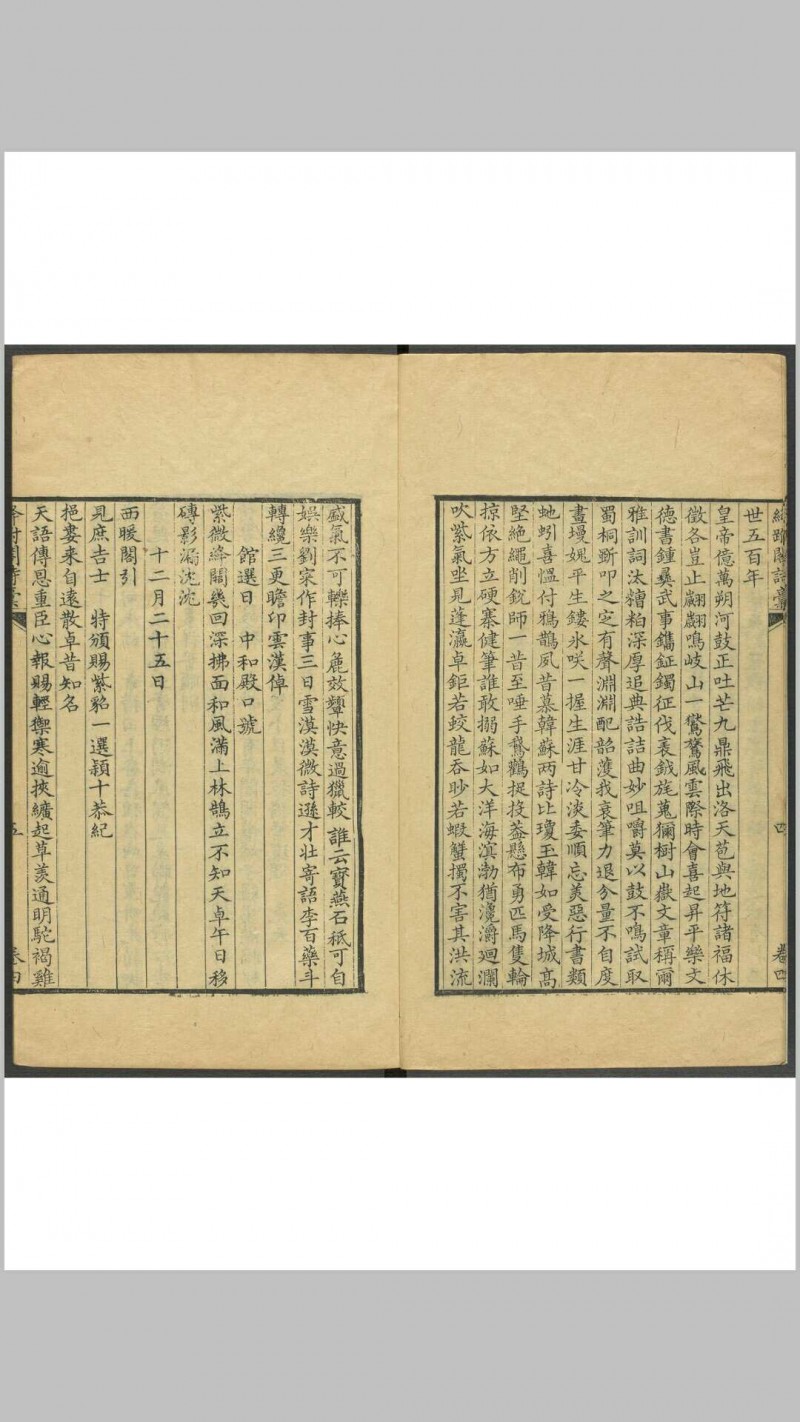 絳跗閣詩藁 四 卷四
世五百年
皇帝億萬朔河鼓正吐芒九鼎飛出洛天苞與地符諸福休
徵各豈止翽翽鳴岐山一鸑鷟風雲際時會喜起昇平樂文
德書鍾彝武事鐫鉦鐲征伐袞鉞旄蒐獮樹山嶽文章稱爾
雅訓詞汰糟粕深厚追典誥詰曲妙咀嚼莫以鼓不鳴試取
蜀桐斲叩之定有聲淵淵配韶濩我衰筆力退分量不自度
畫墁媿平生鏤氷咲一握生涯甘冷淡委順忘美惡行書類
虵蚓喜慍付鴉鵲夙昔慕韓蘇两詩比瓊玉韓如受降城髙
堅絶繩削銳師一昔至唾手鵞鸛捉投葢懸布勇匹馬隻輪
掠依方立硬寨健筆誰敢搦蘇如大洋海溟渤猶瀺灂迴瀾
吹紫氣坐見蓬瀛卓鉅若蛟龍吞眇若蝦蟹擉不害其洪流
盛氣不可轢捧心麄效顰快意過獵較誰云寳燕石秪可自
娛樂劉宋作封事三日雪漠漠微詩遜才壯寄語李百藥斗
轉纔三更瞻卬雲漢倬
館選日 中和殿口號
紫微絳闕幾回深拂面和風滿上林鵠立不知天卓午日移
磚影漏沈沈
十二月二十五日
西暖閣引
見庶吉士 特頒賜紫貂一選穎十恭紀
挹婁來自遠散卓昔知名
天語傳恩重臣心報賜輕禦寒逾挾纊起草羨通明駝褐雞
絳跗閣詩藁 五 卷四